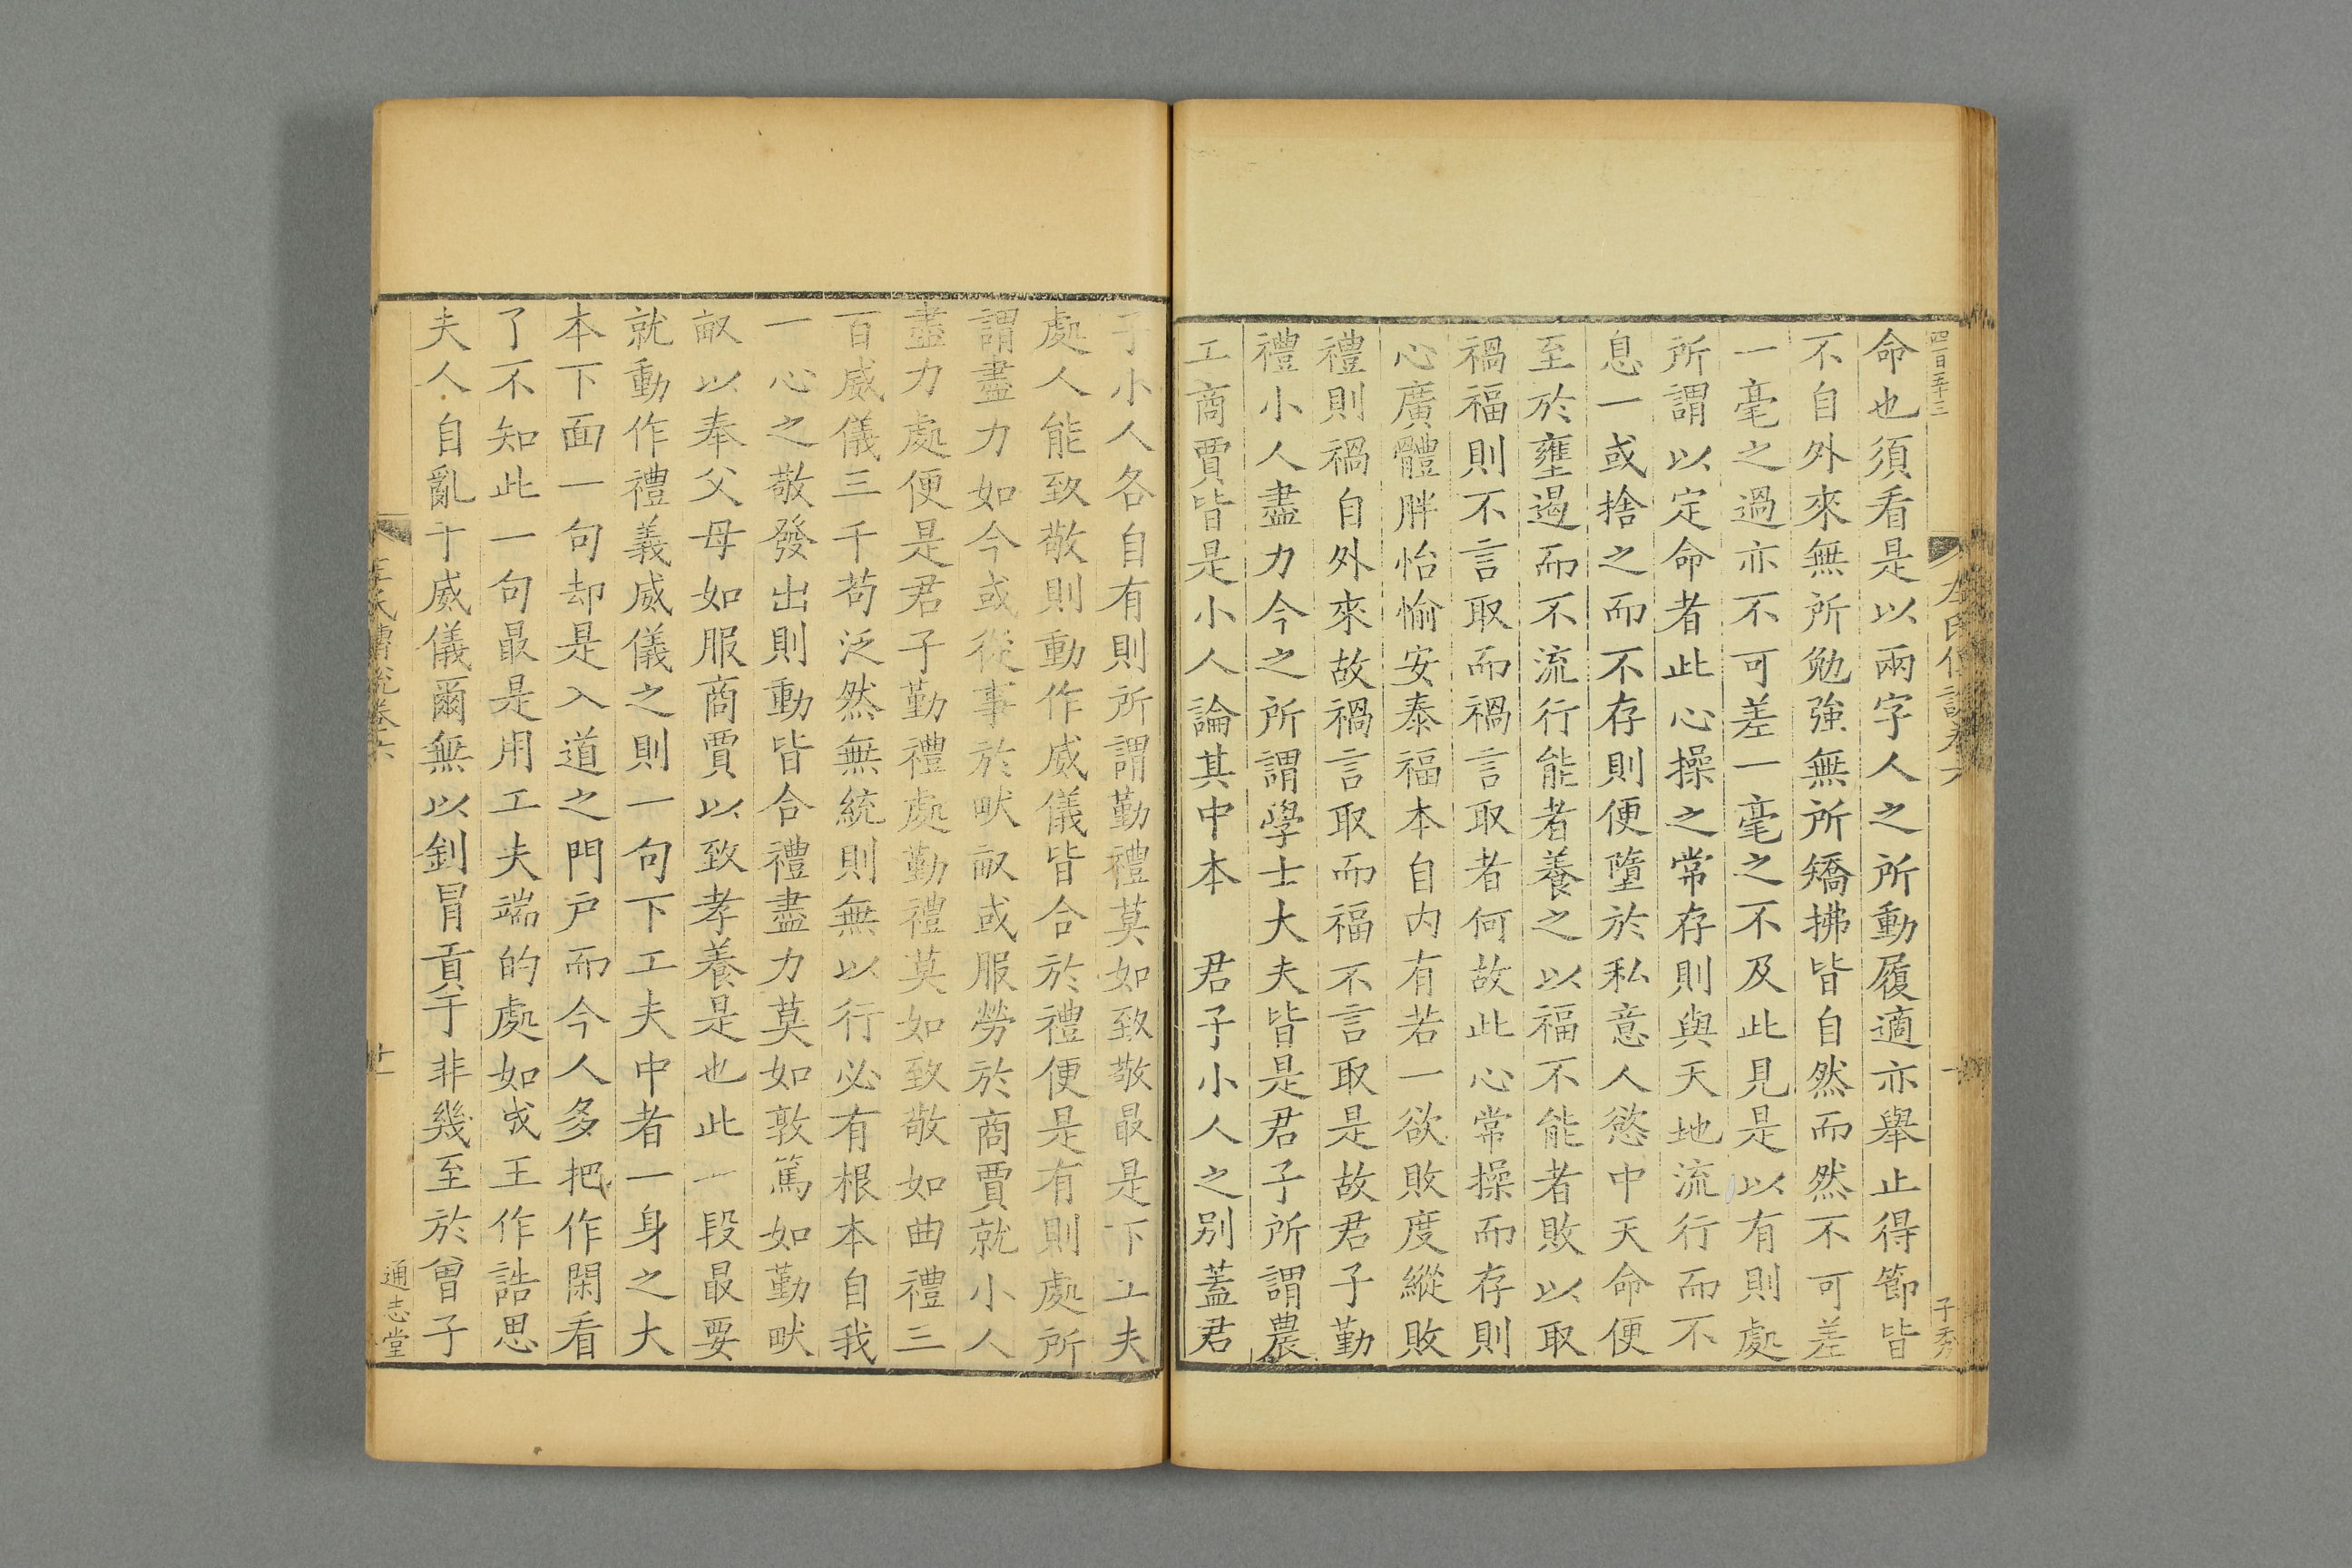 四百五十三
左氏傳說卷六
子秀
命也須看是以兩字人之所動履適亦舉止得節皆
不自外來無所勉強無所矯拂皆自然而然不可差
一毫之過亦不可差一毫之不及此見是以有則處
所謂以定命者此心操之常存則與天地流行而不
息一或捨之而不存則便墮於私意人慾中天命便
至於壅遏而不流行能者養之以福不能者敗以取
禍福則不言取而禍言取者何故此心常操而存則
心廣體胖怡愉安泰福本自内有若一欲敗度縱敗
禮則禍自外來故禍言取而福不言取是故君子勤
禮小人盡力今之所謂學士大夫皆是君子所謂農
工商賈皆是小人論其中本　君子小人之别蓋君
子小人各自有則所謂勤禮莫如致敬最是下工夫
處人能致敬則動作威儀皆合於禮便是有則處所
謂盡力如今或從事於畎畝或服勞於商賈就小人
盡力處便是君子勤禮處勤禮莫如致敬如曲禮三
百威儀三千苟泛然無統則無以行必有根本自我
一心之敬發出則動皆合禮盡力莫如敦篤如勤畎
畝以奉父母如服商賈以致孝養是也此一段最要
就動作禮義威儀之則一句下工夫中者一身之大
本下面一句却是入道之門户而今人多把作閑看
了不知此一句最是用工夫端的處如成王作誥思
夫人自亂于威儀爾無以釗冒貢于非幾至於曾子
左氏傳說卷六
十一
通志堂